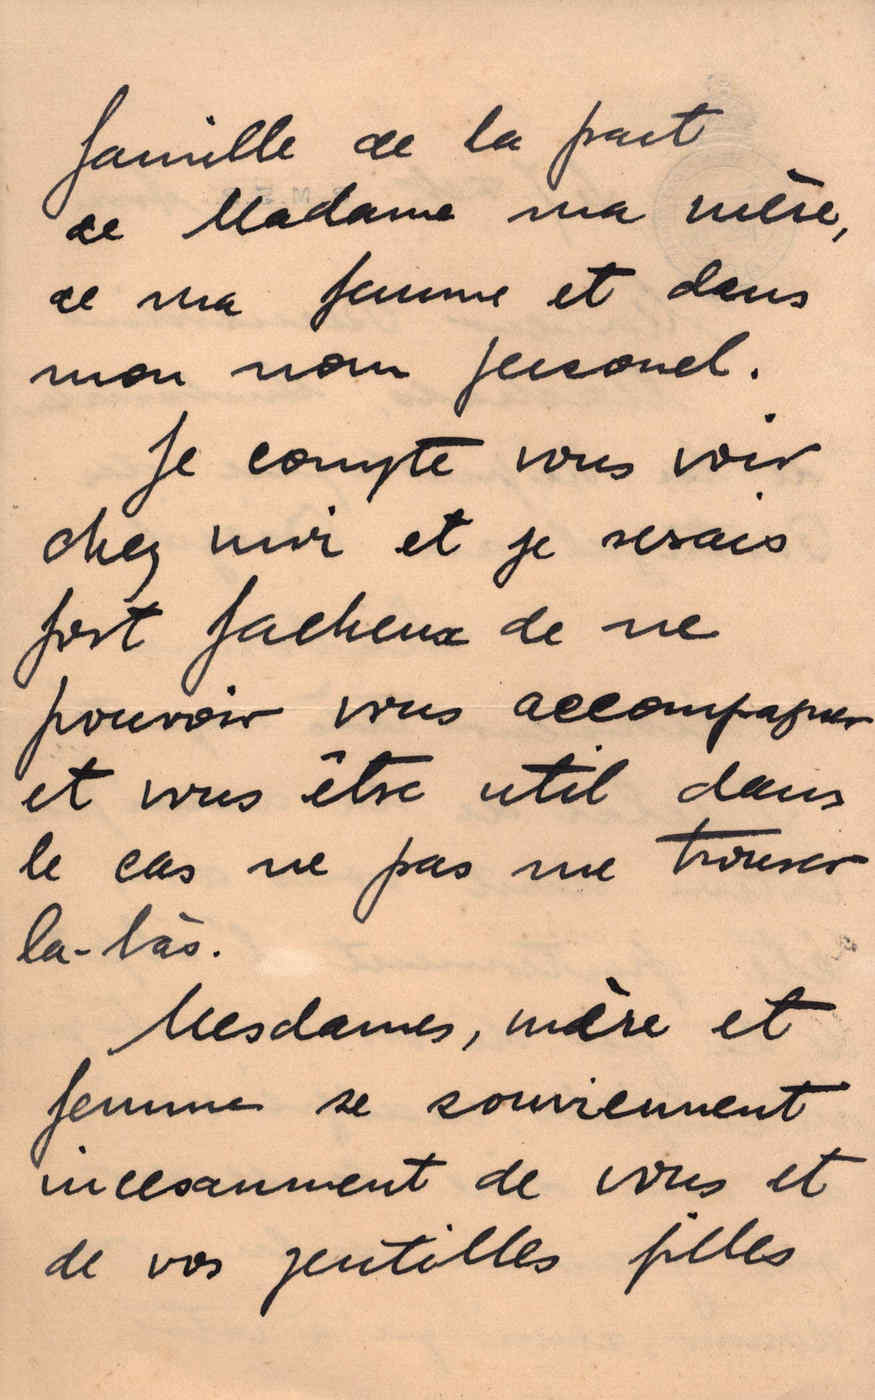 famille de la part
de Madame ma mère,
de ma femme et dans
mon nom personel.
Je compte vous voir
chez moi et je serais
fort facheux de ne
pouvoir vous accompagner
et vous être util dans
le cas ne pas me trouver
la-bàs.
Mesdames, mère et
femme se souviennent
incesamment de vous et
de vos gentilles filles